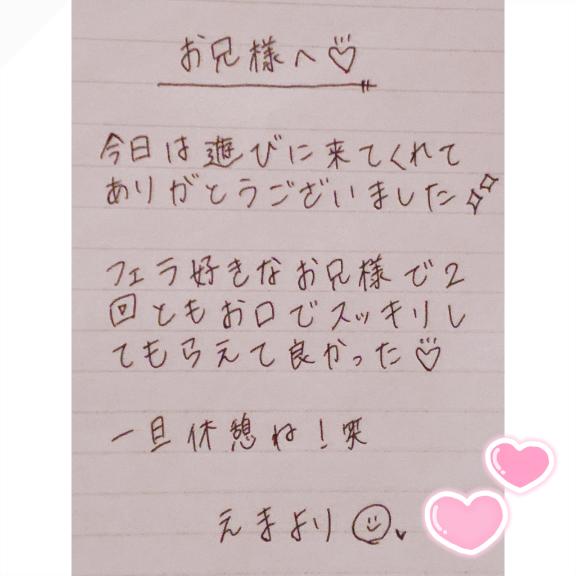 お兄様へ♡
今日は遊びに来てくれて
ありがとうございました
フェラ好きなお兄様で2
回ともお口でスッキリし
てもらえて良かった♡
一旦休憩ね！笑
えまより